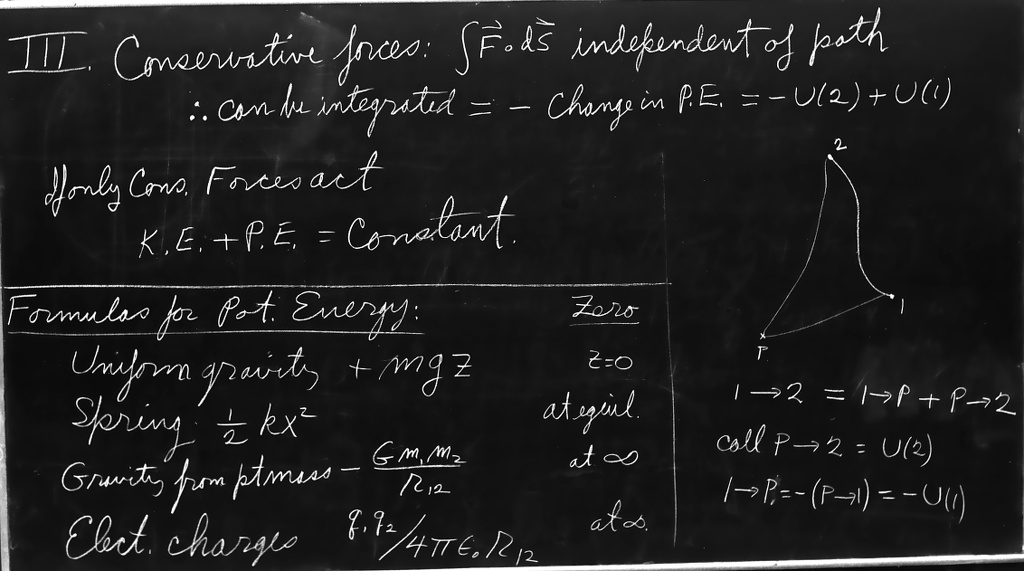 III. Conservative forces: ∫F⃗·ds⃗ independent of path
∴ can be integrated = - Change in P.E. = -U(2)+U(1)
If only Cons. Forces act
K.E. + P.E. = Constant.
Formulas for Pot. Energy: Zero
Uniform gravity + mgz z=0
Spring 1/2 kx² at equil.
Gravity from pt mass - G m₁ m₂ / R₁₂ at ∞
Elect. charges q₁q₂/4πϵ₀R₁₂ at ∞.
2
1
P
1→2 = 1→P + P→2
call P→2 = U(2)
1→P = -(P→1) = -U(1)